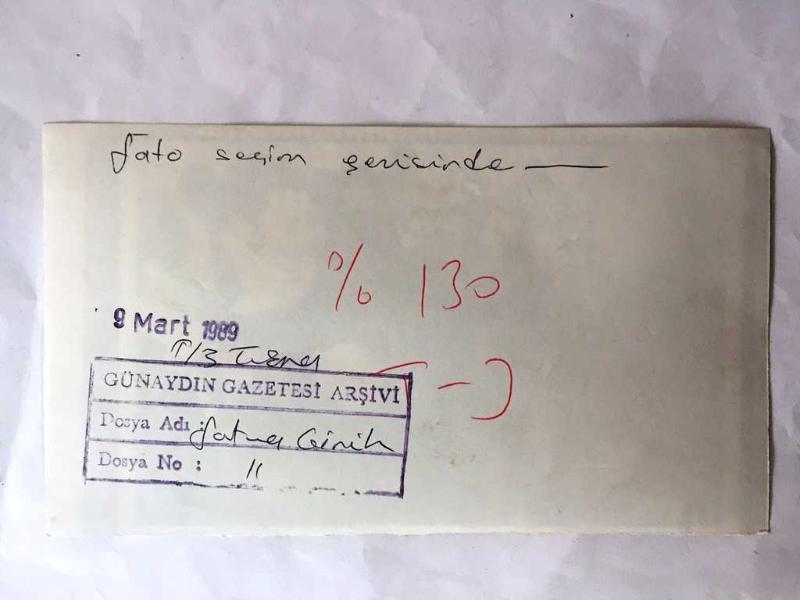 Fato seçim gezisinde
% 130
9 Mart 1989
GÜNAYDIN GAZETESİ ARŞİVİ
Dosya Adı : Fatma Girik
Dosya No : 11